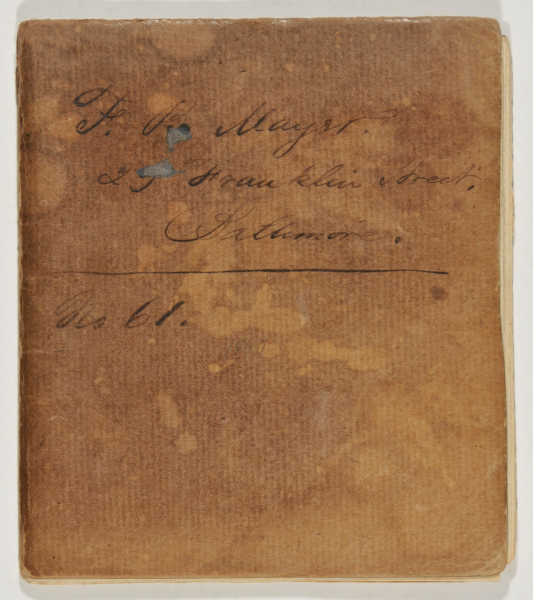 F. B. Mayer.
Franklin Street,
Baltimore.
No 61.